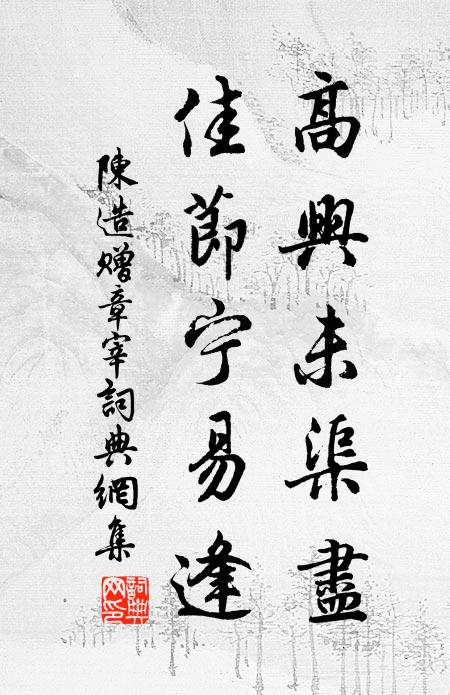 高興未渠盡
佳節宁易逢
陳造贈章宰詞典網集
詞典网印